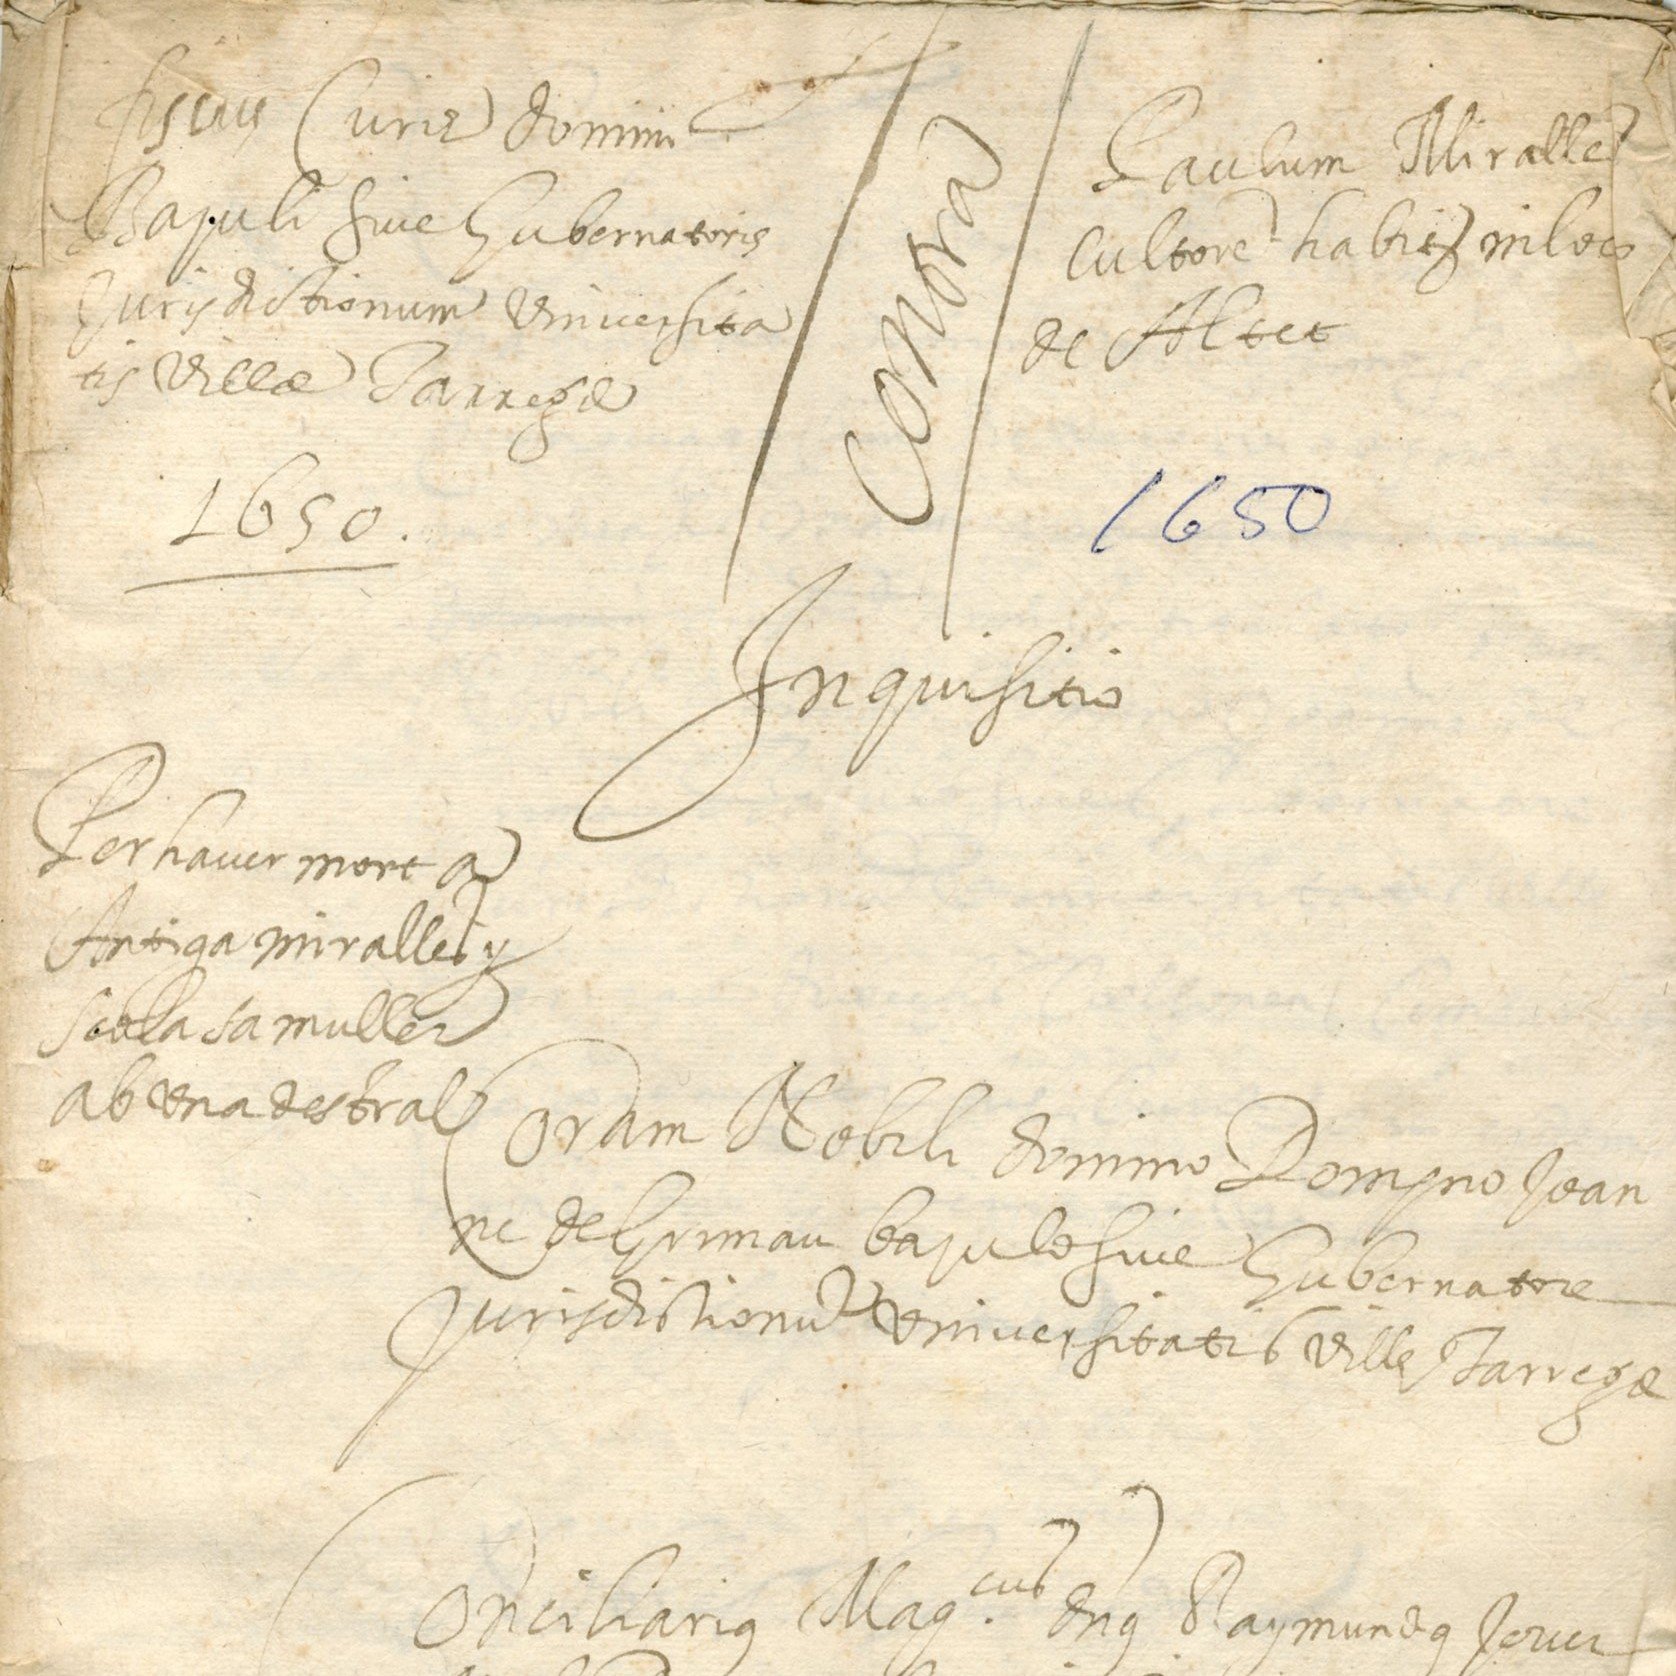 fiscus Curiæ domini
Bajuli sive Gubernatoris
Jurisdictionum universita
tis villæ Tarregæ
1650.
contra
Paulum Miralles
cultore habit in loco
de Altet
1650
Inquisitio
Per haver mort a
Antiga miralles y
scola sa muller
ab una destral
Coram Nobili domino Dompno Joan
ne de Grimau bajulo sive Gubernatore
Jurisdictionu universitatis ville Tarregæ
Consiliariq Mag.cus dnq Raymundq Jover